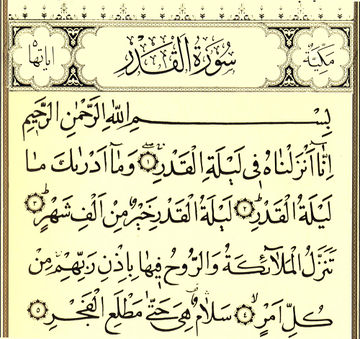 مكية سورة القدر اياتها ٥
بسم الله الرحمن الرحيم
انا انزلناه في ليلة القدر ١ وما ادريك ما
ليلة القدر ٢ ليلة القدر خير من الف شهر ٣
تنزل الملائكة والروح فيها باذن ربهم من
كل امر ٤ سلام هي حتى مطلع الفجر ٥